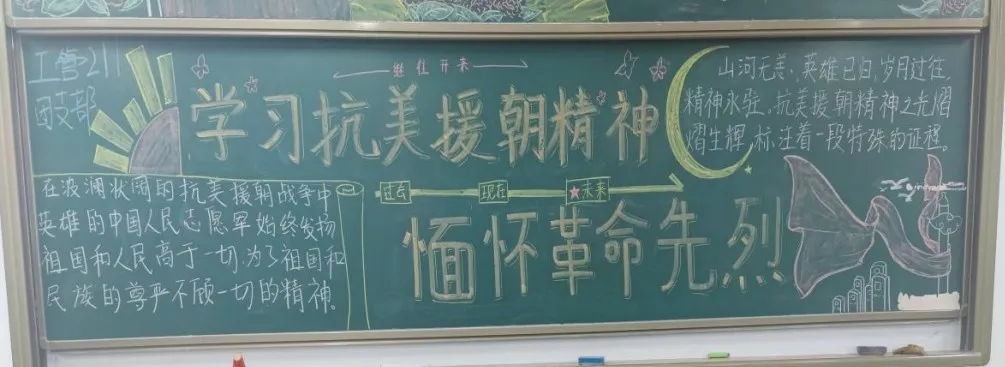 工管211
团支部
继往开来
学习抗美援朝精神
过去
现在
未来
缅怀革命先烈
在波澜壮阔的抗美援朝战争中
英雄的中国人民志愿军始终发扬
祖国和人民高于一切,为了祖国和
民族的尊严不顾一切的精神。
山河无恙,英雄已归,岁月过往,
精神永驻,抗美援朝精神之光熠
熠生辉,标注着一段特殊的征程。